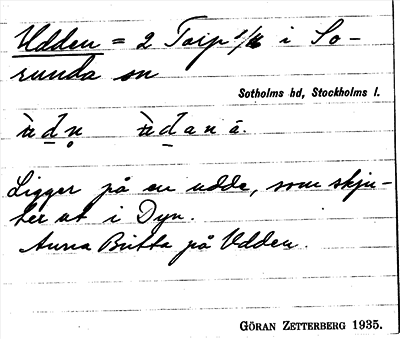 Udden = 2 Torp i So-
runda sn
Sotholms hd, Stockholms l.
Ligger på en udde, som skju-
ter ut i Dyn.
Anna Britta på Udden.
GÖRAN ZETTERBERG 1935.